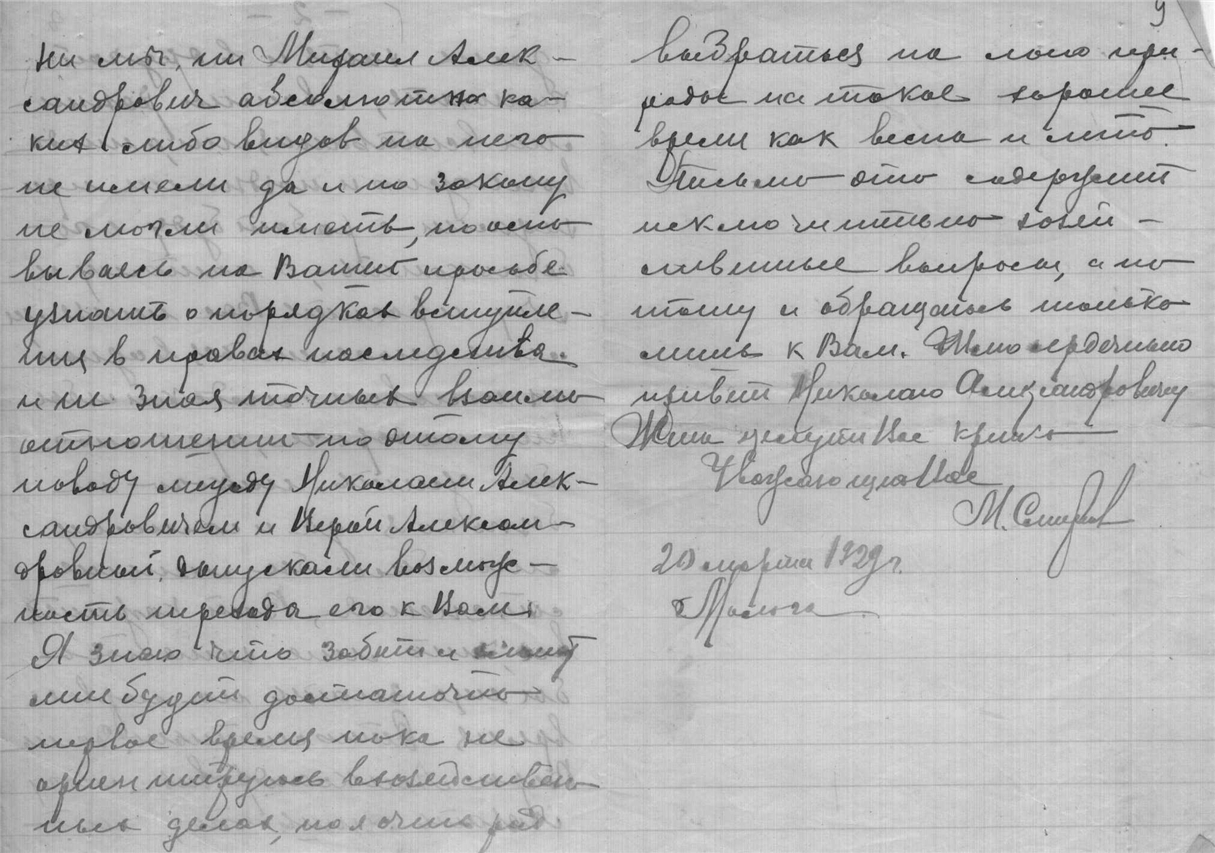 ни мы, ни Михаил Алек-
сандрович абсолютно ка-
ких либо видов на него
не имели да и по закону
не могли иметь, но осно
вываясь на Вашей просьбе
узнать о порядках вступле-
ния в права наследства.
и не зная точных взаимо
отношений по этому
поводу между Николаем Алек-
сандровичем и Верой Алексан-
дровной, допускали возмож-
ность перехода его к Вам.
Я знаю что забот и хлопот
мне будет достаточно
первое время пока не
ориентируюсь в хозяйствен
ных делах, но я очень рад
9
выбраться на лоно при-
роды на такое хорошее
время как весна и лето.
Письмо это содержит
исключительно хозяй-
ственные вопросы, а по
тому и обращаюсь только
лишь к Вам. Шлю сердечно
привет Николаю Александровичу
Женя целует Вас крепко
Уважающий Вас
М. Смирнов
20 марта 1929 г.
г. Молога